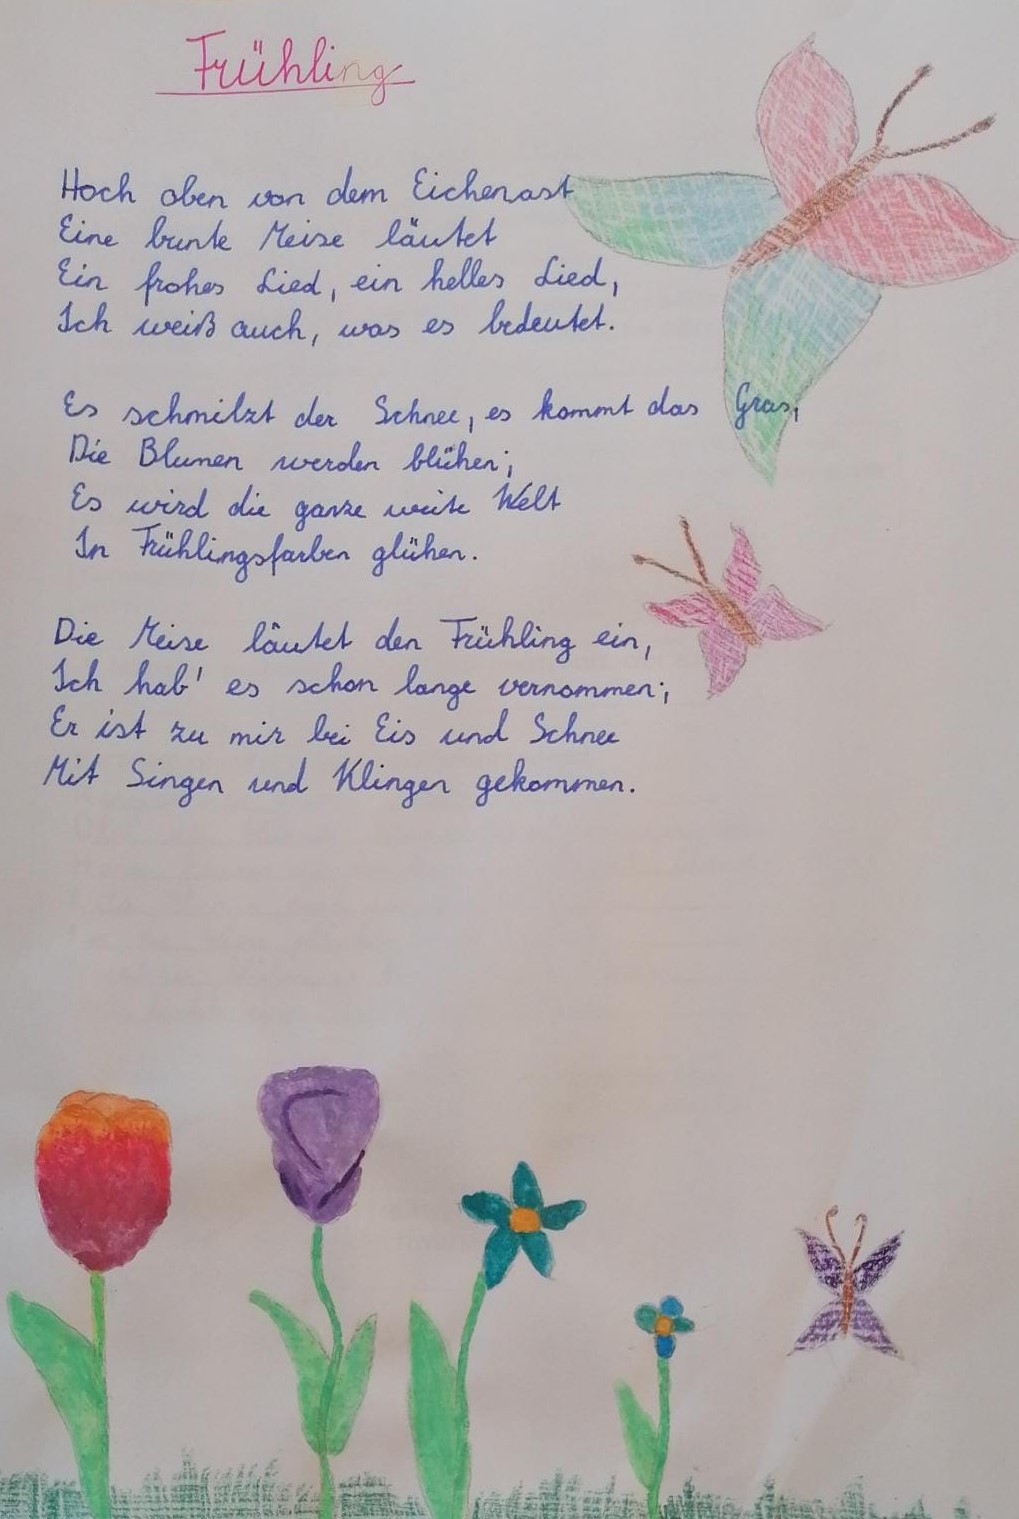 Frühling
Hoch oben von dem Eichenast
Eine bunte Meise läutet
Ein frohes Lied, ein helles Lied,
Ich weiß auch, was es bedeutet.
Es schmilzt der Schnee, es kommt das Gras,
Die Blumen werden blühen;
Es wird die ganze weite Welt
In Frühlingsfarben glühen.
Die Meise läutet den Frühling ein,
Ich hab' es schon lange vernommen;
Er ist zu mir bei Eis und Schnee
Mit Singen und Klingen gekommen.